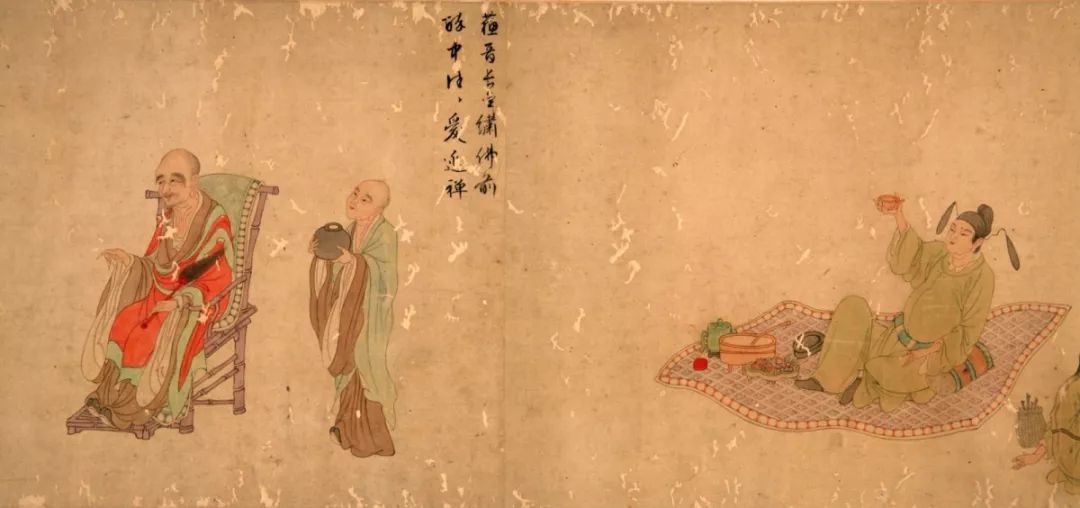 蘓晉長齋繡佛前
醉中往〻愛逃禪